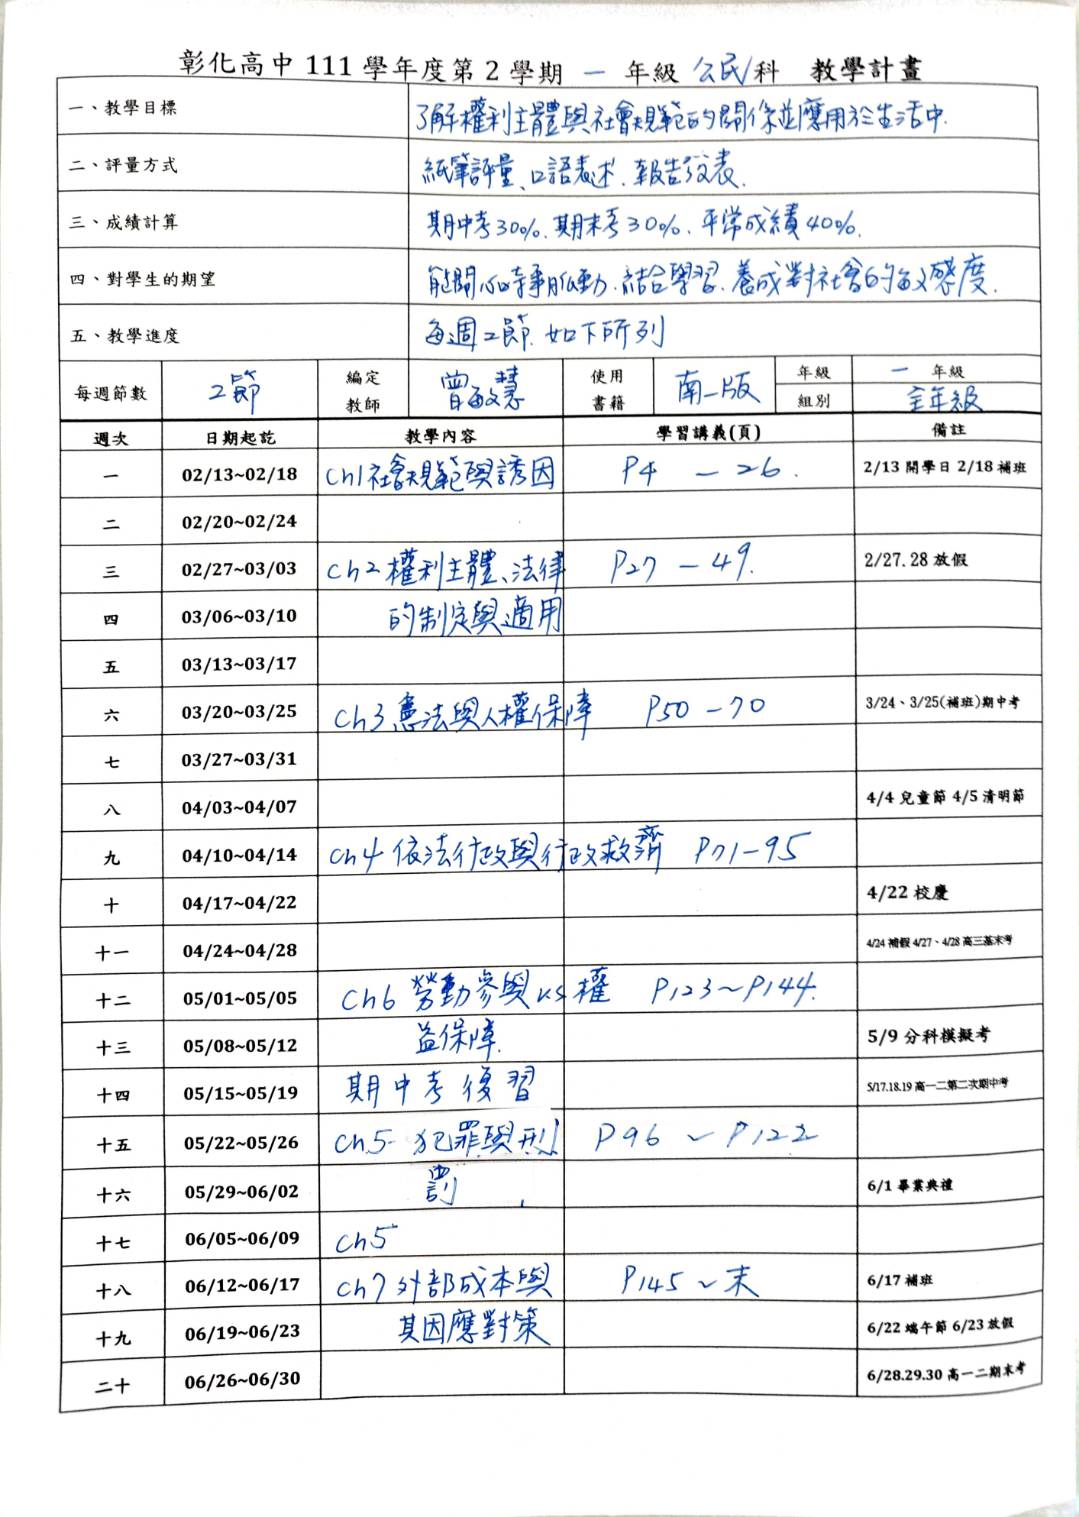 彰化高中 111 學年度第 2 學期 一 年級 公民 科 教學計畫
一、教學目標 了解權利主體與社會規範的關係並應用於生活中.
二、評量方式 紙筆評量、口語表述、報告發表.
三、成績計算 期中考30%、期末考30%、平常成績40%.
四、對學生的期望 能關心時事脈動、結合學習、養成對社會的敏感度.
五、教學進度 每週2節、如下所列
每週節數 2節 編定教師 曾敏慧 使用書籍 南一版 年級 一 年級
組別 全年級
週次 日期起訖 教學內容 學習講義(頁) 備註
一 02/13~02/18 Ch1社會規範與誘因 P4 — 26. 2/13 開學日 2/18 補班
二 02/20~02/24
三 02/27~03/03 Ch2權利主體、法律 P27 — 49. 2/27.28 放假
四 03/06~03/10 的制定與適用
五 03/13~03/17
六 03/20~03/25 Ch3憲法與人權保障 P50 — 70 3/24、3/25(補班)期中考
七 03/27~03/31
八 04/03~04/07 4/4 兒童節 4/5 清明節
九 04/10~04/14 Ch4 依法行政與行政救濟 P71—95
十 04/17~04/22 4/22 校慶
十一 04/24~04/28 4/24 補假 4/27、4/28 高三基末考
十二 05/01~05/05 Ch6 勞動參與vs權 P123~P144.
十三 05/08~05/12 益保障. 5/9 分科模擬考
十四 05/15~05/19 期中考復習 5/17.18.19 高一二第二次期中考
十五 05/22~05/26 Ch5 犯罪與刑 P96 ~ P122
十六 05/29~06/02 罰 6/1 畢業典禮
十七 06/05~06/09 Ch5
十八 06/12~06/17 Ch7 外部成本與 P145 ~ 末 6/17 補班
十九 06/19~06/23 其因應對策 6/22 端午節 6/23 放假
二十 06/26~06/30 6/28.29.30 高一二期末考